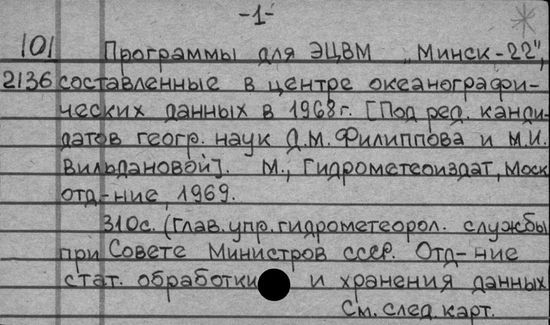 -1-
101 Программы для ЭЦВМ „Минск-22",
2136 составленные в центре океанографи-
ческих данных в 1968 г. [Под ред. канди-
датов геогр. наук Д.М. Филиппова и М.И.
Вильдановой]. М., Гидрометеоиздат, Моск
отд-ние, 1969.
310с. (Глав. упр. гидрометеорол. службы
при Совете Министров СССР. Отд-ние
стат. обработки и хранения данных
См. след. карт.